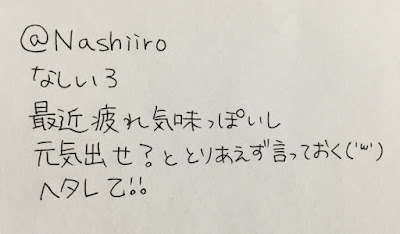 @Nashiiro
なしいろ
最近疲れ気味っぽいし
元気出せ?ととりあえず言っておく('ω')
ヘタレ乙!!